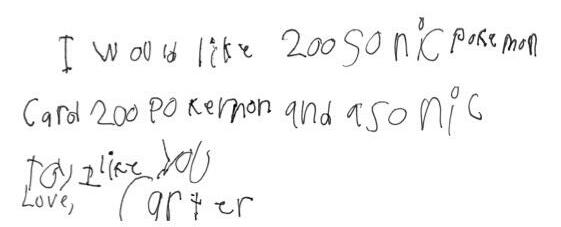 I would like 200 sonic pokemon
Card 200 pokemon and a sonic
toy I like you
Love, Carter